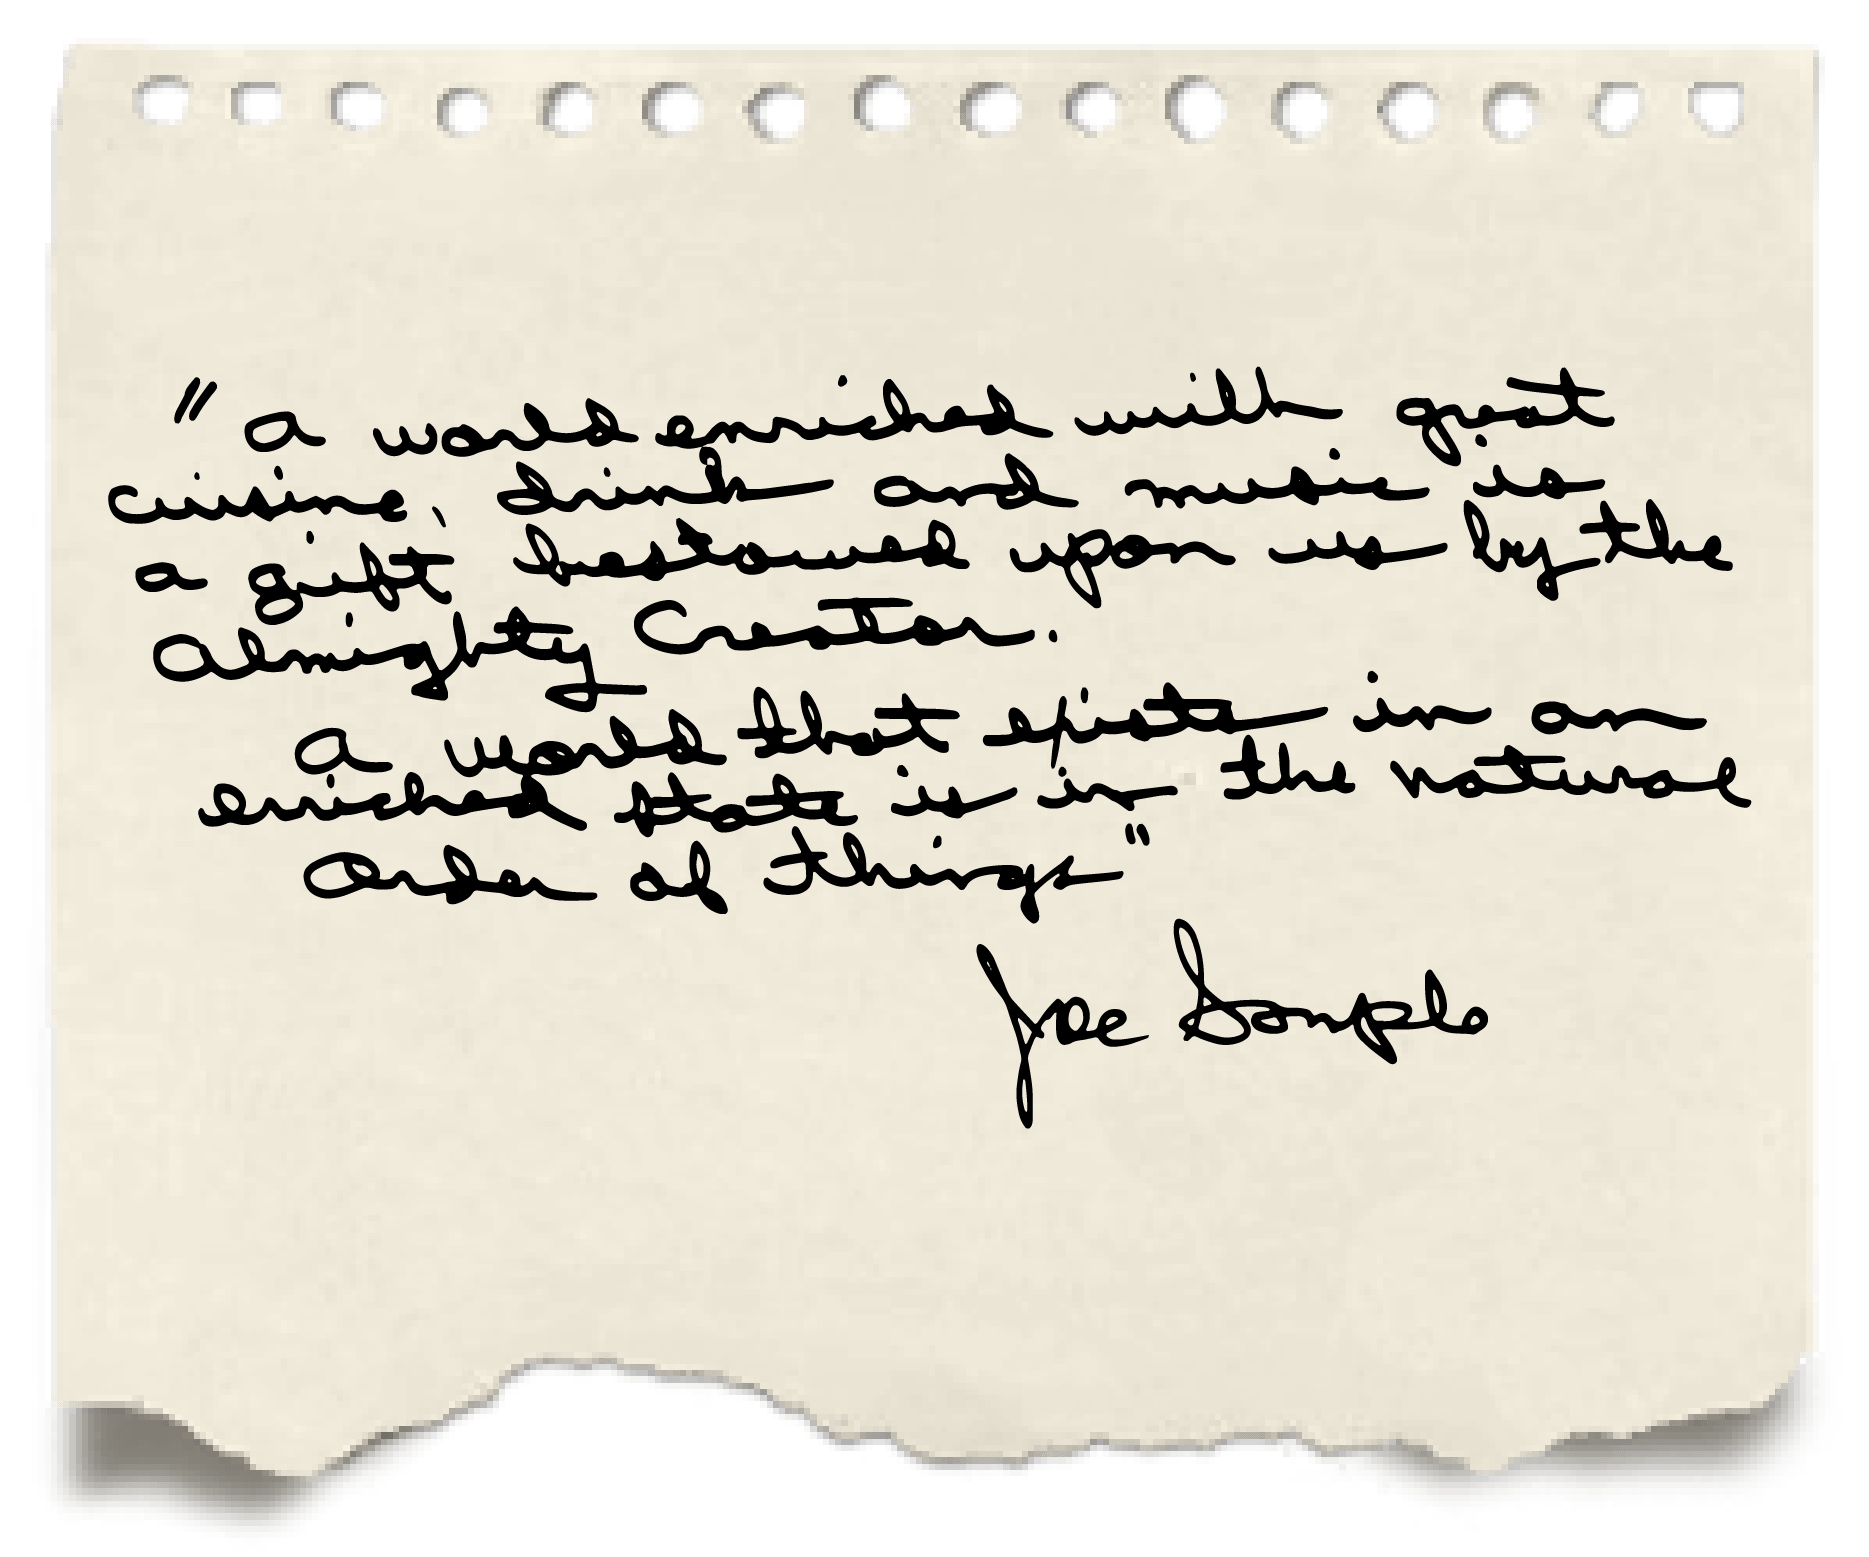 "A world enriched with great
cuisine, drink and music is
a gift bestowed upon us by the
Almighty Creator.
A world that exists in an
enriched state is in the natural
order of things"
Joe Sample